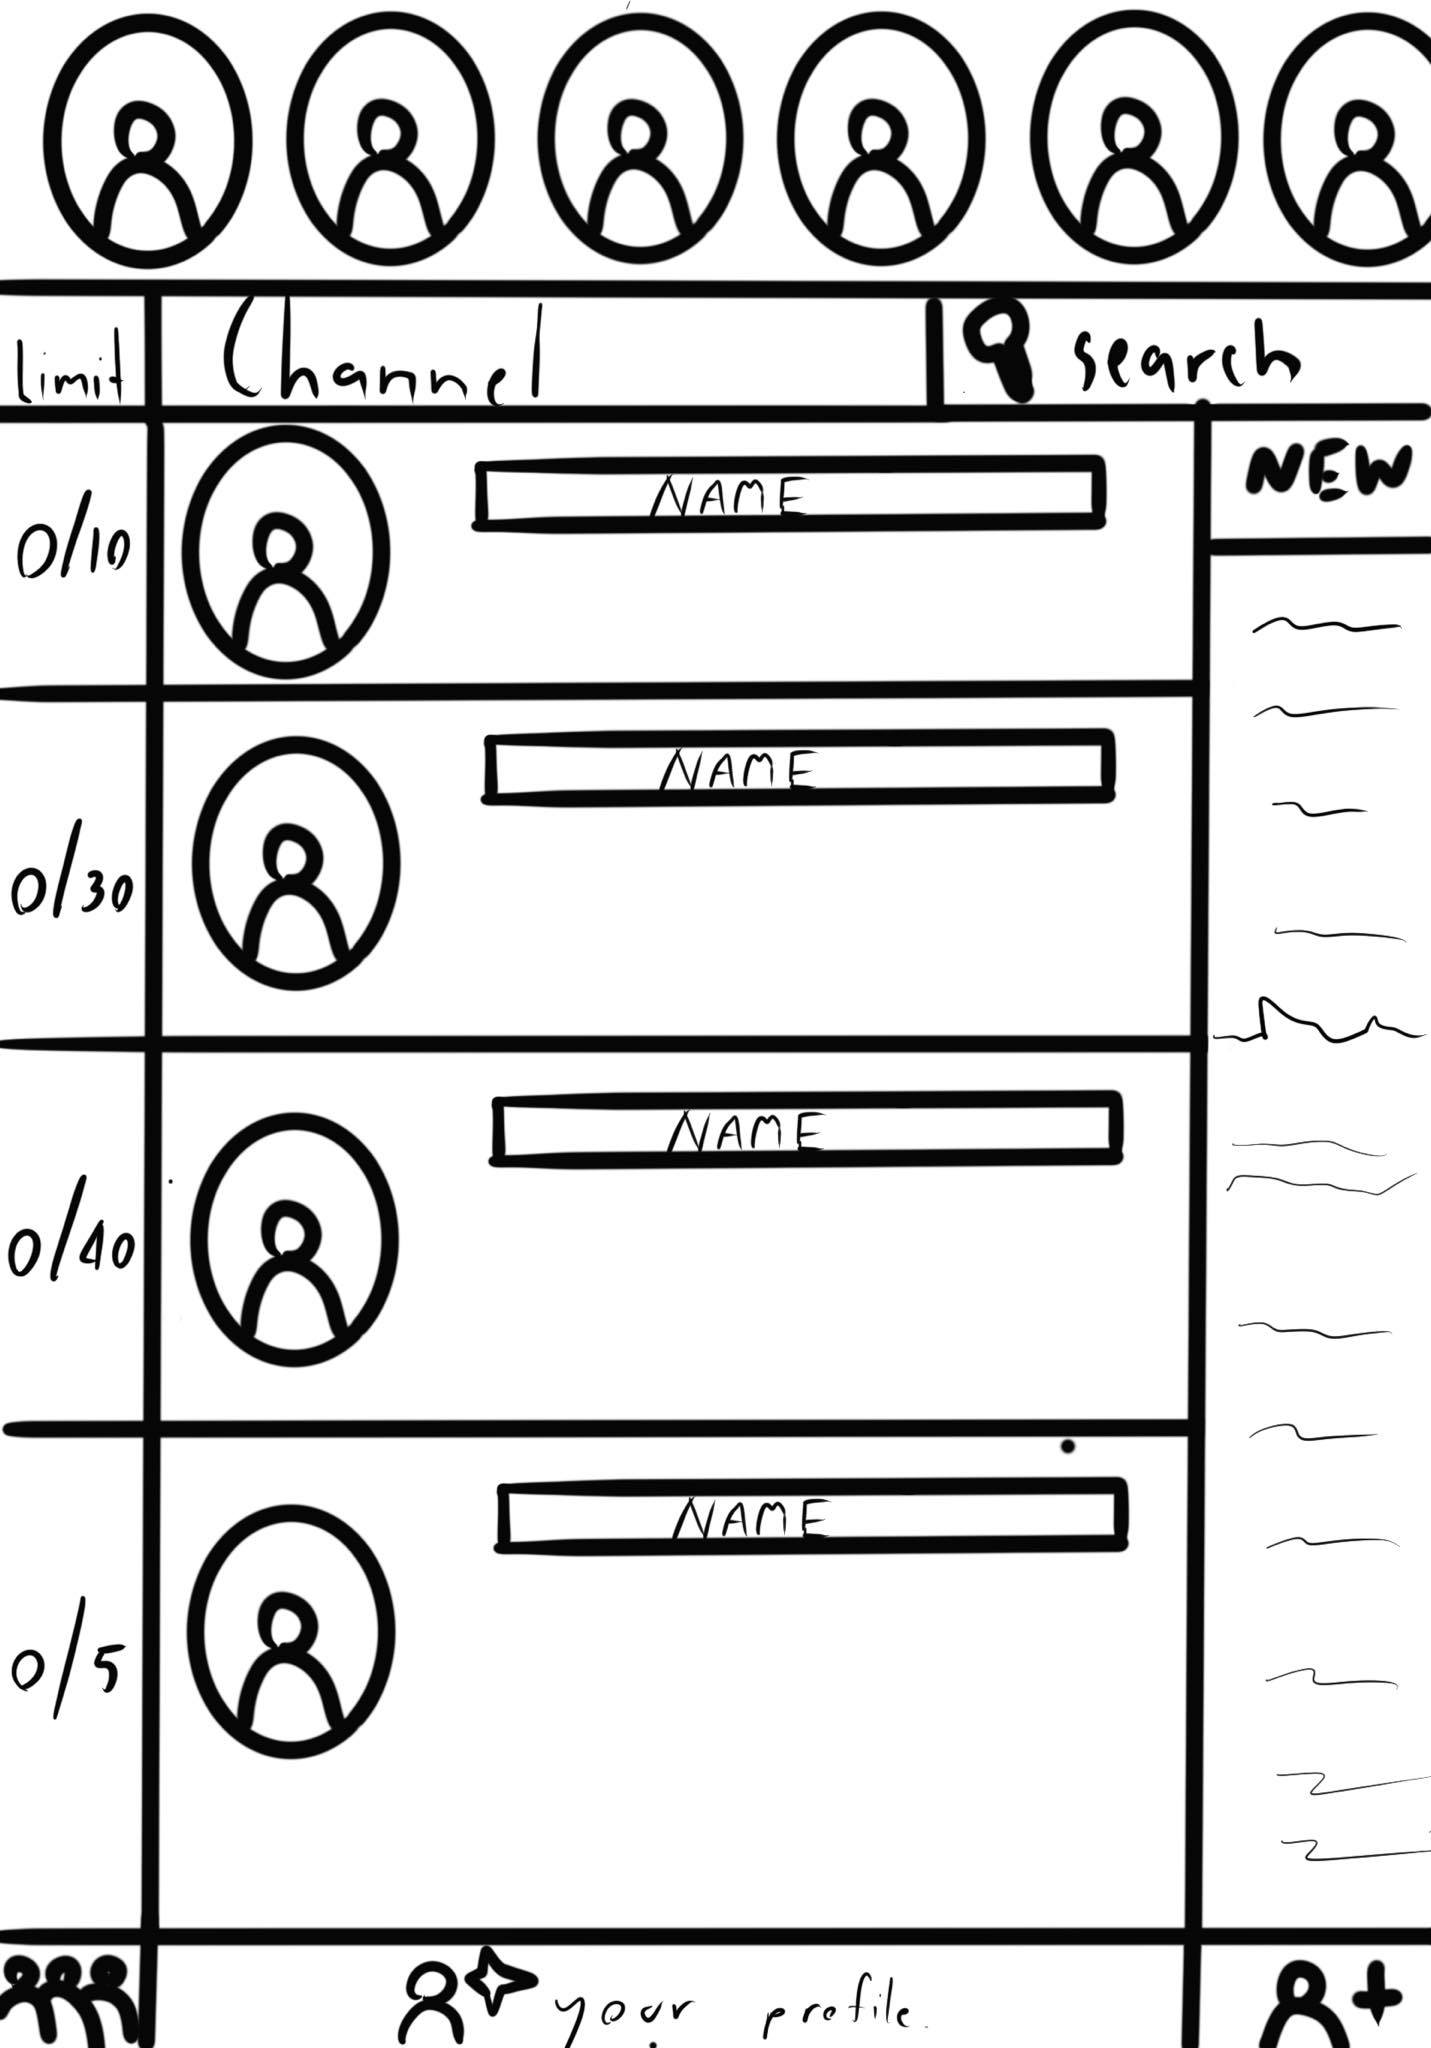 Limit Channel search
NEW
0/10 NAME
0/30 NAME
0/40 NAME
0/5 NAME
your profile.